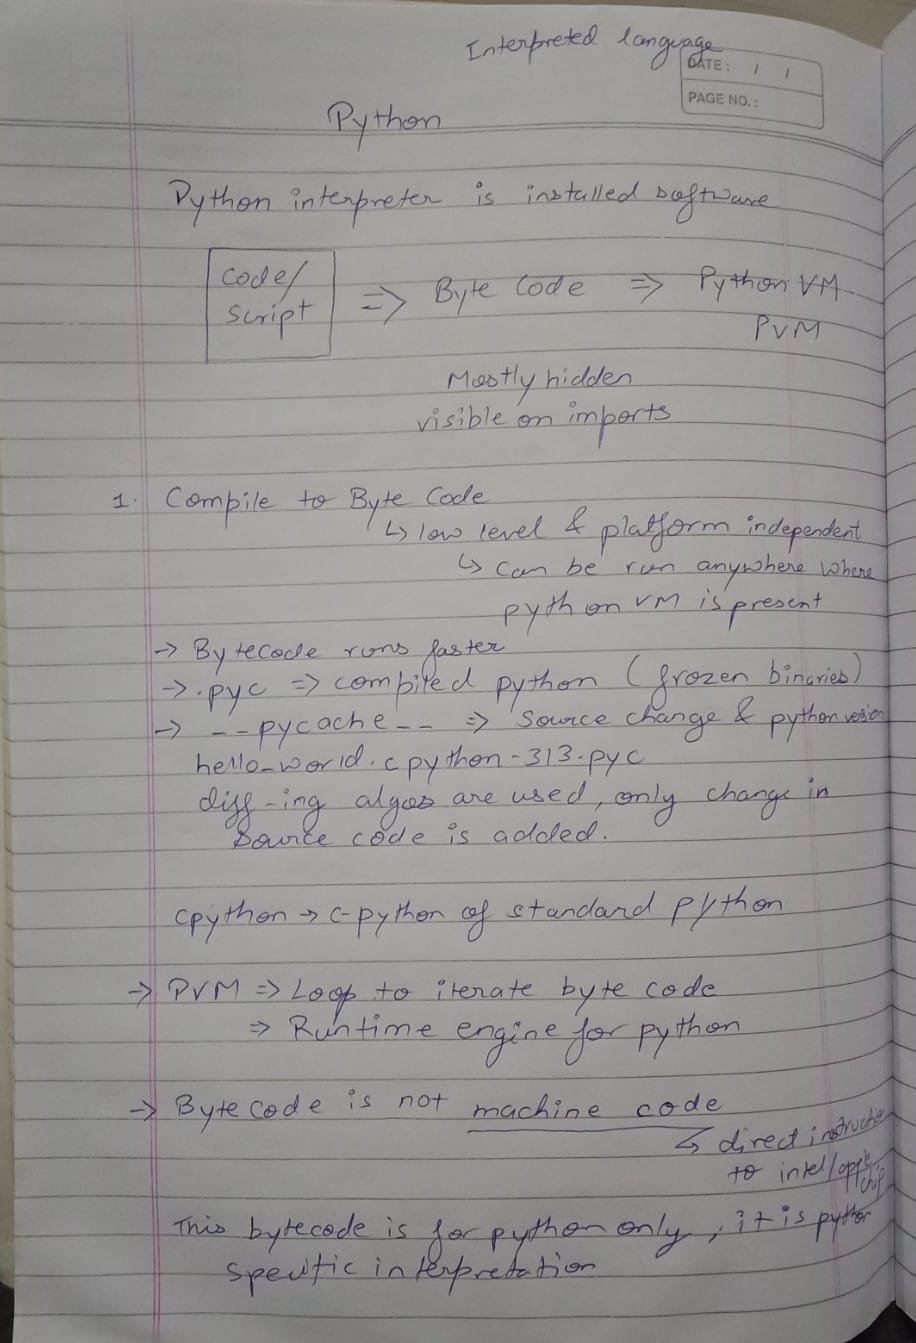 Interpreted language
DATE: / /
PAGE NO.:
Python
Python interpreter is installed software
Code/
Script
=> Byte Code => Python VM
PVM
Mostly hidden
visible on imports
1. Compile to Byte Code
↳ low level & platform independent
↳ can be run anywhere where
python VM is present
→ Bytecode runs faster
→ .pyc => compiled python (frozen binaries)
→ __pycache__ => Source change & python version
hello_world.cpython-313.pyc
diff-ing algos are used, only change in
source code is added.
cpython → c-python of standard python
→ PVM => Loop to iterate byte code
=> Runtime engine for python
→ Byte code is not machine code
↳ direct instruction
to intel/apple
chip
This bytecode is for python only, it is python
specific interpretation